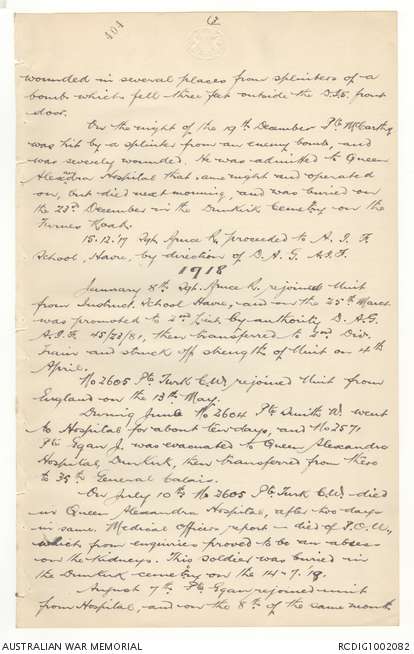 404
(2
wounded in several places from splinters of a
bomb which fell three feet outside the front
door.
On the night of the 19th December Pte McCarthy
was hit by a splinter from an enemy bomb, and
was severely wounded. He was admitted to Queen
Alexandra Hospital that same night and operated
on, but died next morning, and was buried on
the 23rd December in the Dunkirk Cemetery on the
Furnes Road.
15.12.17 Sgt. Bruce R. proceeded to A.I.F.
School, Havre, by direction of D.A.G. A.I.F.
1918
January 8th Sgt. Bruce R. rejoined Unit
from Instruct. School Havre, and on the 25th March
was promoted to 2nd Lieut. by authority D.A.G.
A.I.F. 45/23/81, then transferred to 2nd Div.
Train and struck off strength of Unit on 4th
April.
No 2605 Pte Turk C.W. rejoined Unit from
England on the 13th May.
During June No 2604 Pte Smith W. went
to Hospital for about ten days, and No 2571
Pte Egan J. was evacuated to Queen Alexandra
Hospital, Dunkirk, then transferred from there
to 35th General Calais.
On July 10th No 2605 Pte Turk C.W. died
in Queen Alexandra Hospital, after two days
in same. Medical Officers report - died of P.O.U.,
which from enquiries proved to be an abscess
on the kidneys. This soldier was buried in
the Dunkirk cemetery on the 14-7-18.
August 7th Pte Egan rejoined unit
from Hospital, and on the 8th of the same month
AUSTRALIAN WAR MEMORIAL
RCDIG1002082